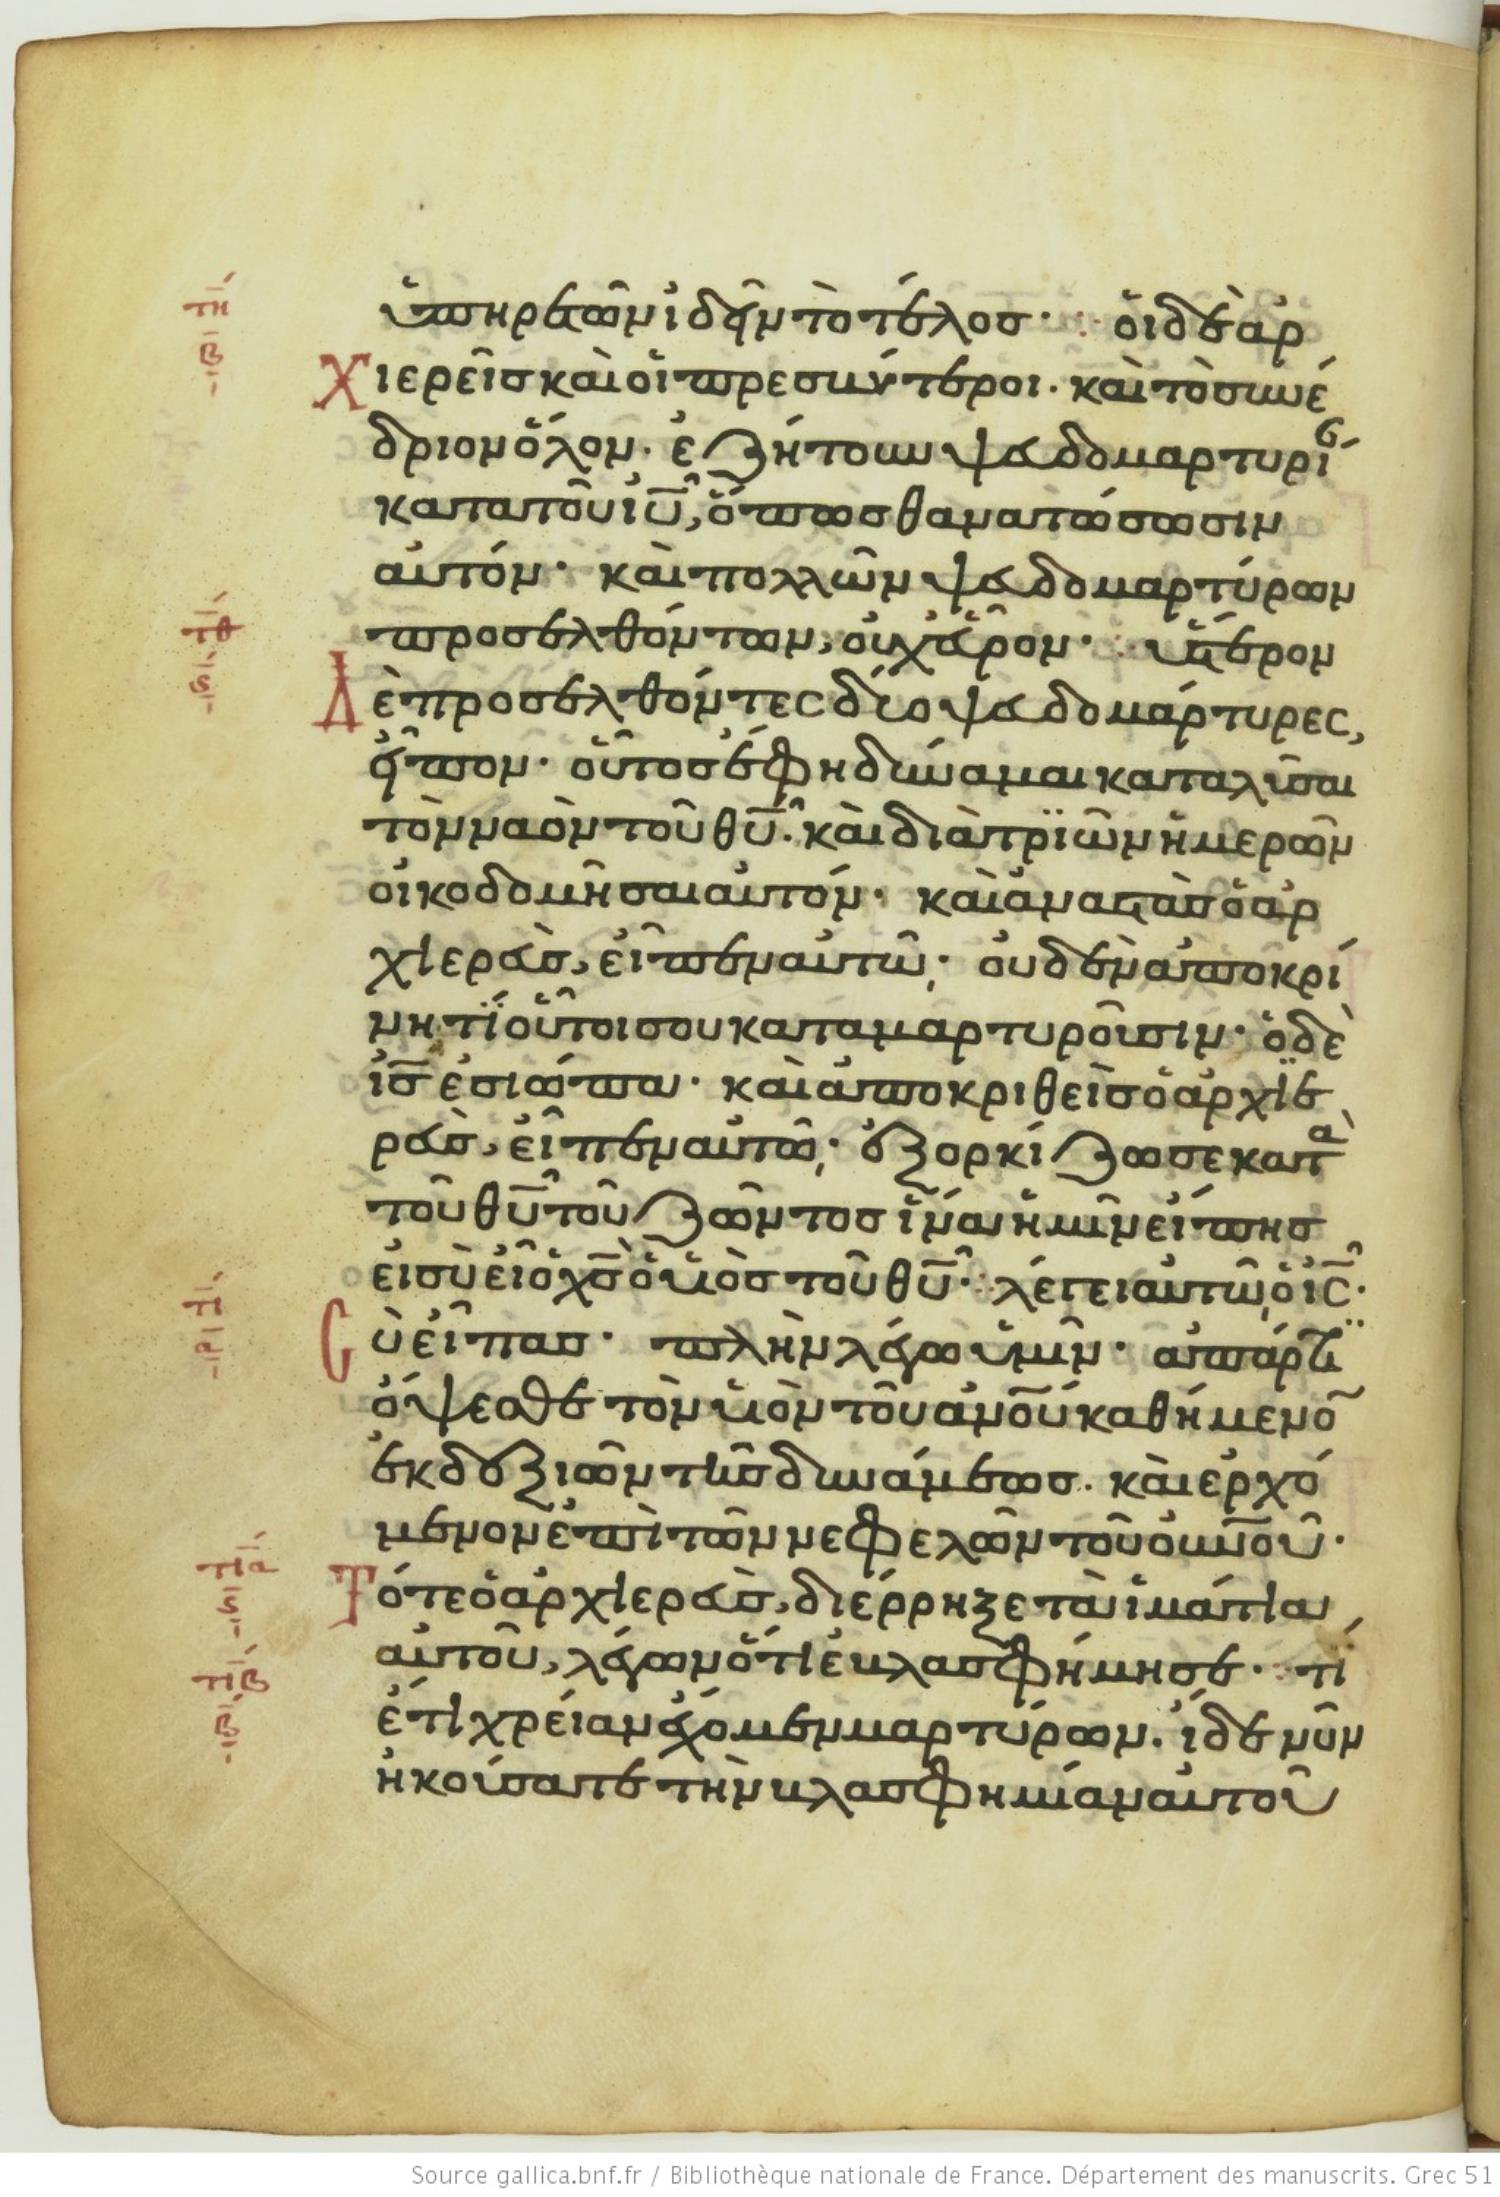 ὑπηρετῶν ἰδεῖν τὸ τέλος · οἱ δὲ ἀρ
χιερεῖς καὶ οἱ πρεσβύτεροι · καὶ τὸ συνέ
δριον ὅλον · ἐζήτουν ψευδομαρτυρί
κατὰ τοῦ ἰῦ, ὅπως θανατώσωσιν
αὐτόν · καὶ πολλῶν ψευδομαρτύρων
προσελθόντων, οὐχ εὗρον · ὕστερον
δὲ προσελθόντες δύο ψευδομάρτυρες,
εἶπον · οὗτος ἔφη δύναμαι καταλῦσαι
τὸν ναὸν τοῦ θῦ · καὶ διὰ τριῶν ἡμερῶν
οἰκοδομῆσαι αὐτόν · καὶ ἀναστὰς ὁ ἀρ
χιερεὺς, εἶπεν αὐτῷ · οὐδὲν ἀποκρί
νη τί οὗτοι σου καταμαρτυροῦσιν · ὁ δὲ
ἰς ἐσιώπα · καὶ ἀποκριθεὶς ὁ ἀρχιε
ρεὺς, εἶπεν αὐτῷ · ἐξορκίζω σε κατὰ
τοῦ θῦ τοῦ ζῶντος ἵνα ἡμῖν εἴπης
εἰ σὺ εἶ ὁ χς ὁ υἱὸς τοῦ θῦ · λέγει αὐτῷ ὁ ἰς ·
Σὺ εἶπας · πλὴν λέγω ὑμῖν · ἀπάρτι
ὄψεσθε τὸν υἱὸν τοῦ ἀνοῦ καθήμενο
ἐκ δεξιῶν τῆς δυνάμεως · καὶ ἐρχό
μενον ἐπὶ τῶν νεφελῶν τοῦ οὐνοῦ ·
Τότε ὁ ἀρχιερεὺς, διέρρηξε τὰ ἱμάτια
αὐτοῦ, λέγων ὅτι ἐβλασφήμησε · τί
ἔτι χρείαν ἔχομεν μαρτύρων · ἴδε νῦν
ἠκούσατε τὴν βλασφημίαν αὐτοῦ
Source gallica.bnf.fr / Bibliothèque nationale de France. Département des manuscrits. Grec 51